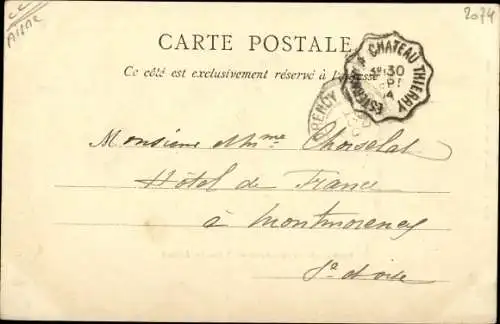 Aisne
2074
CARTE POSTALE
Ce côté est exclusivement réservé à l'adresse
ESTERNAY A CHATEAU THIERRY
30
4
RENCY
Monsieur et Mme Choiselat
Hôtel de France
à Montmorency
Se et oise